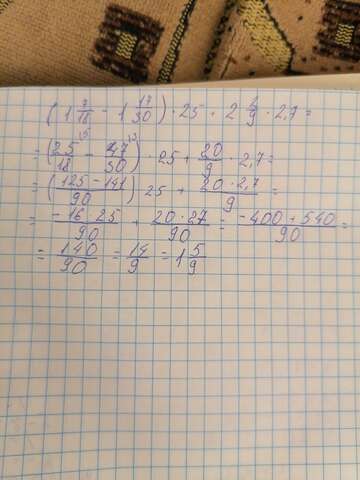 (1 7/18 - 1 17/30) · 25 + 2 2/9 · 2,7 =
= (25/18 ⁵ - 47/30 ³) · 25 + 20/9 · 2,7 =
= (125 - 141/90) · 25 + 20 · 2,7/9 =
= -16 · 25/90 + 20 · 27/90 = -400 + 540/90 =
= 140/90 = 14/9 = 1 5/9